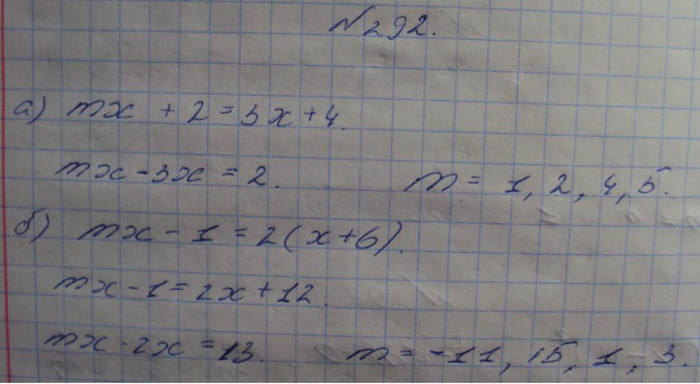 №292.
а) mx + 2 = 3x + 4.
mx - 3x = 2. m = 1, 2, 4, 5.
б) mx - 1 = 2(x + 6).
mx - 1 = 2x + 12.
mx - 2x = 13. m = -11, 15, 1, 3.